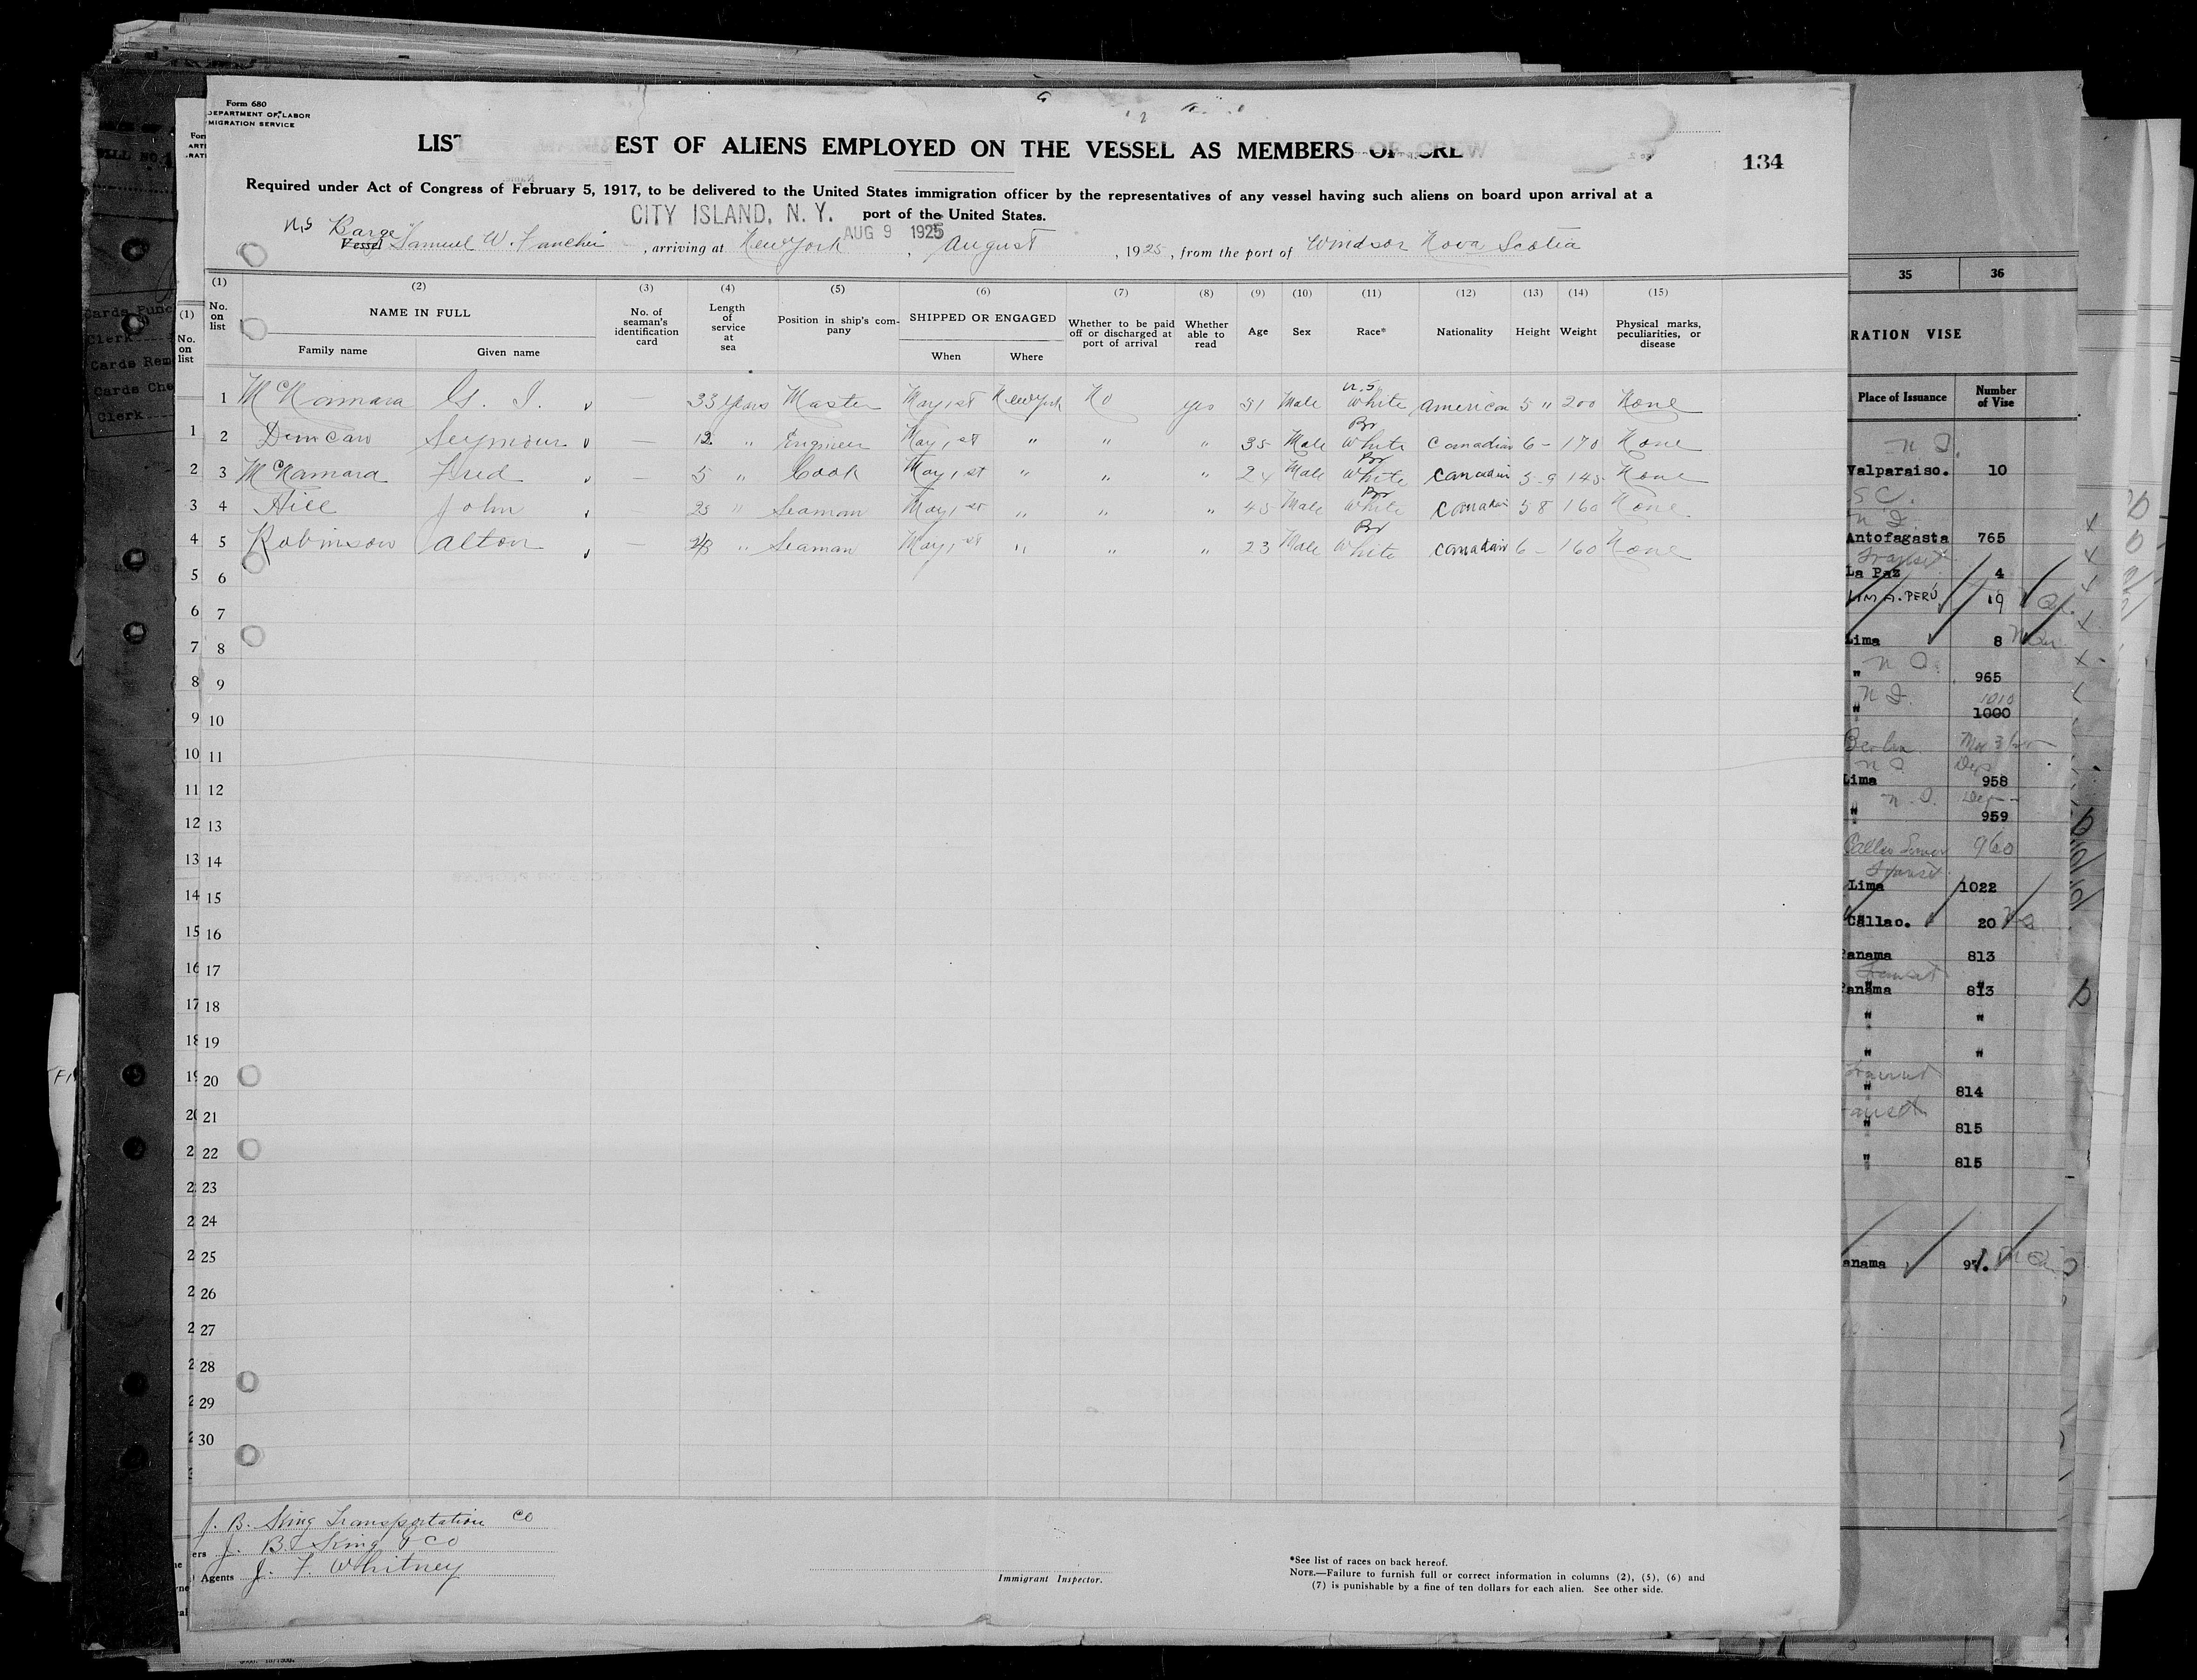 Form 680
DEPARTMENT OF LABOR
MIGRATION SERVICE
LIST EST OF ALIENS EMPLOYED ON THE VESSEL AS MEMBERS OF CREW
134
Required under Act of Congress of February 5, 1917, to be delivered to the United States immigration officer by the representatives of any vessel having such aliens on board upon arrival at a
CITY ISLAND, N. Y. port of the United States.
AUG 9 1925
Barge
Vessel Samuel W. , arriving at New York , August , 1925, from the port of Windsor Nova Scotia
(1) (2) (3) (4) (5) (6) (7) (8) (9) (10) (11) (12) (13) (14) (15)
No. on list NAME IN FULL Family name Given name No. of seaman's identification card Length of service at sea Position in ship's company SHIPPED OR ENGAGED When Where Whether to be paid off or discharged at port of arrival Whether able to read Age Sex Race* Nationality Height Weight Physical marks, peculiarities, or disease
1 McNamara G. I. — 33 years Master May 1st New York No yes 51 Male U.S White American 5 11 200 None
2 Duncan Seymour — 12 " Engineer May 1st " " " 35 Male Br White Canadian 6 - 170 None
3 McNamara Fred — 5 " Cook May 1st " " " 24 Male Br White Canadian 5-9 145 None
4 Hill John — 25 " Seaman May 1st " " " 45 Male Br White Canadian 5 8 160 None
5 Robinson Alton — " Seaman May 1st " " " 23 Male Br White Canadian 6 - 160 None
6
7
8
9
10
11
12
13
14
15
16
17
18
19
20
21
22
23
24
25
26
27
28
29
30
J. B. King Transportation Co
ers J. B. King & Co
Agents J. F. Whitney
Immigrant Inspector.
*See list of races on back hereof.
NOTE.—Failure to furnish full or correct information in columns (2), (5), (6) and
(7) is punishable by a fine of ten dollars for each alien. See other side.
35 36
RATION VISE
Place of Issuance Number of Vise
Valparaiso. 10
Antofagasta 765
La Paz 4
LIMA. PERÚ 19
Lima 8
" 965
1010
" 1000
Berlin
Lima 958
" 959
960
Transit
Lima 1022
Callao. 20
Panama 813
Transit
Panama 813
" "
" "
" 814
" 815
" 815
anama